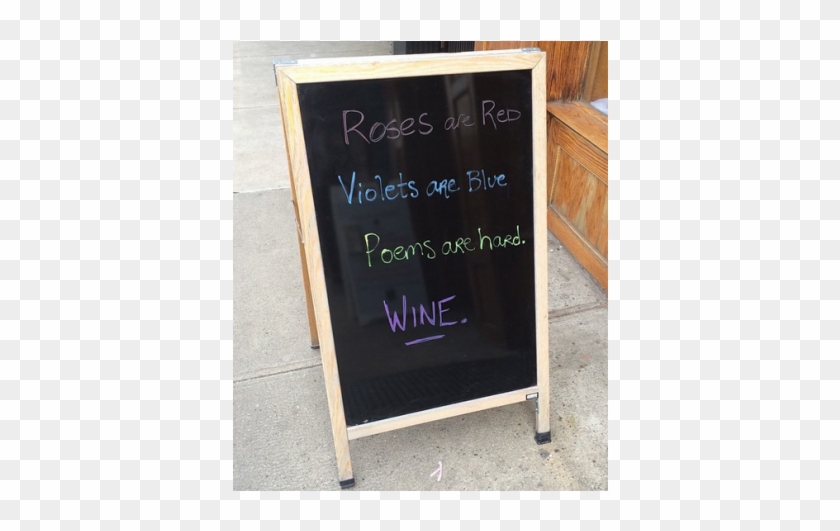 Roses are Red
Violets are Blue
Poems are hard.
WINE.